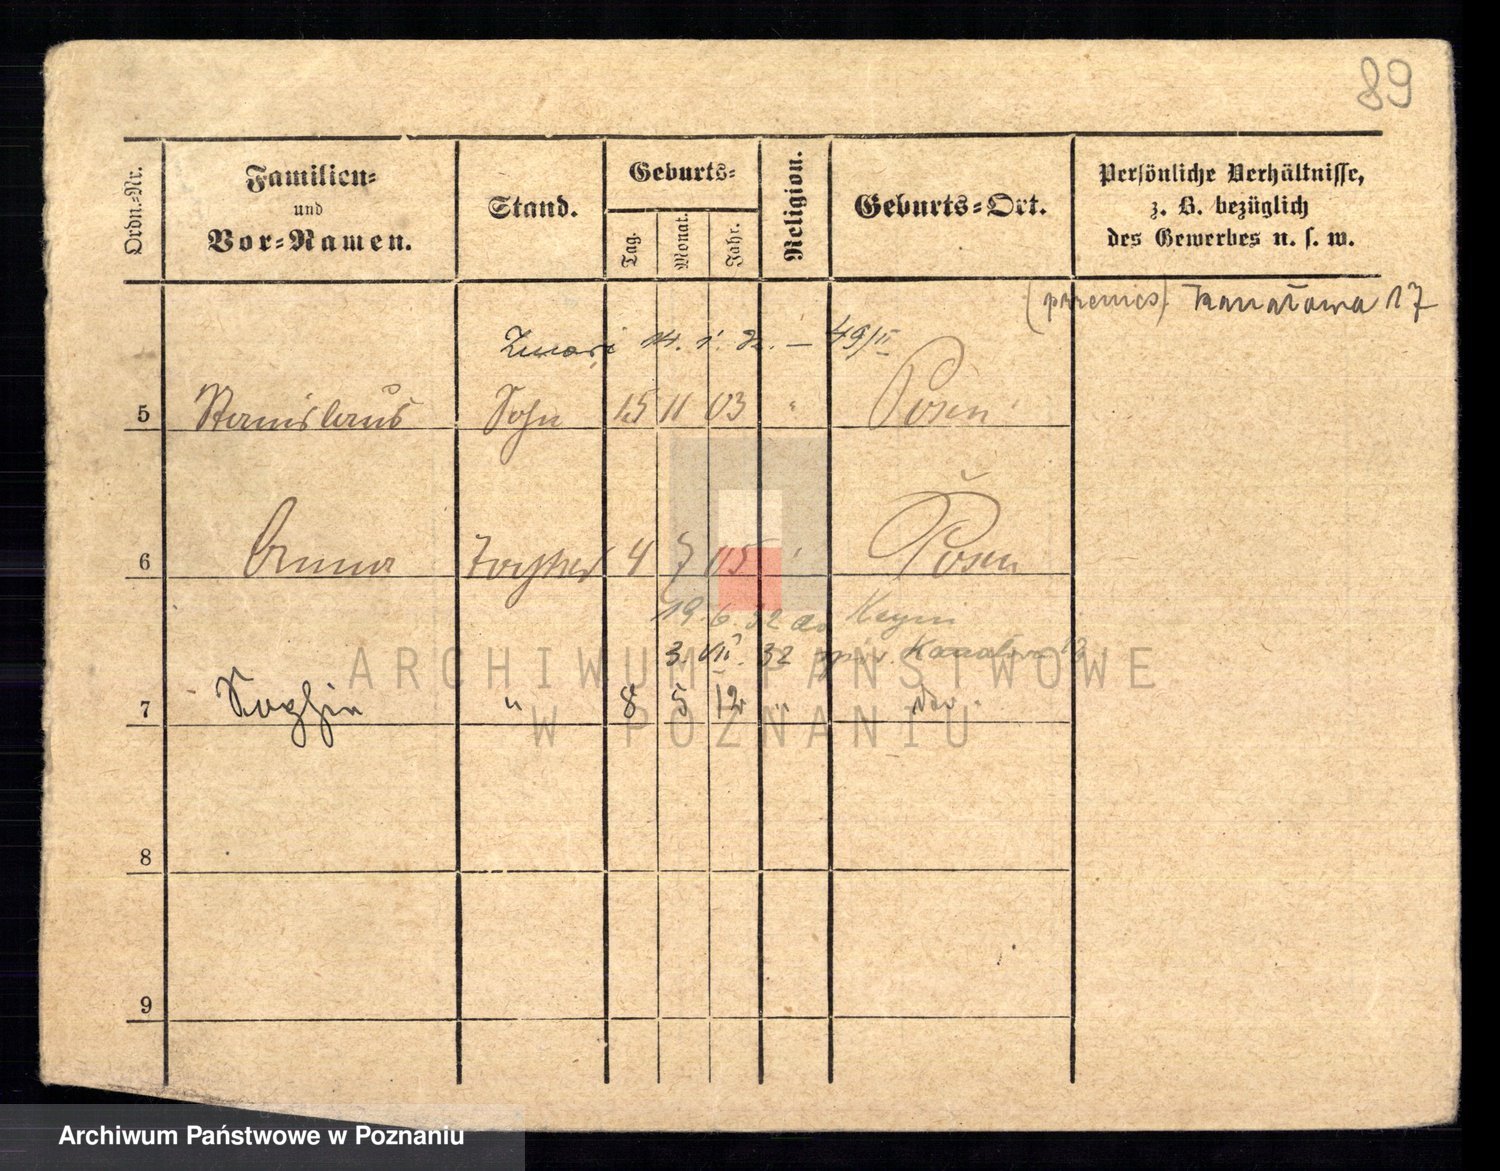 89
Ordn.-Nr.
Familien-
und
Vor-Namen.
Stand.
Geburts-
Tag.
Monat.
Jahr.
Religion.
Geburts-Ort.
Persönliche Verhältnisse,
z. B. bezüglich
des Gewerbes u. s. w.
Kanałowa 17
49/II
5 Stanislaus Sohn 15 11 03 " Posen
6 Anna Tochter 4 7 05 " Posen
19.6.32 do Keyni
3. VII. 32 Kanałowa
7 Sophia " 8 5 12 "
8
9
ARCHIWUM PAŃSTWOWE
W POZNANIU
Archiwum Państwowe w Poznaniu